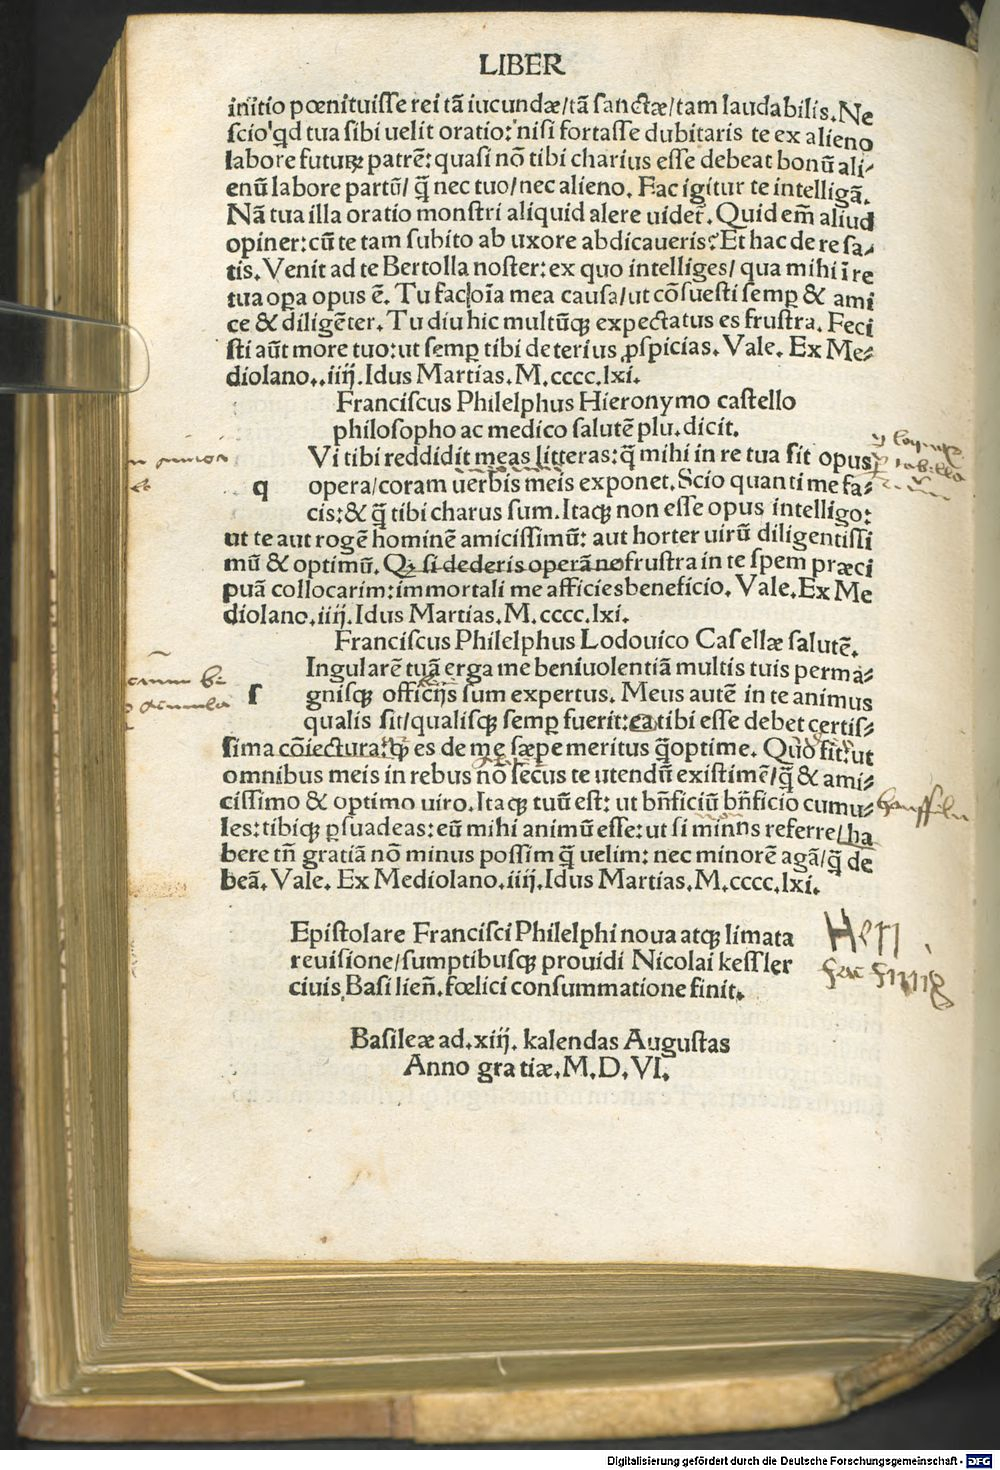 LIBER
initio pœnituisse rei tā iucundæ/tā sanctæ/tam laudabilis. Ne
scio qd tua sibi uelit oratio: nisi fortasse dubitaris te ex alieno
labore futuꝝ patrē: quasi nō tibi charius esse debeat bonū ali-
enū labore partū/ q̄ nec tuo/nec alieno. Fac igitur te intelligā.
Nā tua illa oratio monstri aliquid alere uidet̄. Quid em̄ aliud
opiner: cū te tam subito ab uxore abdicaueris? Et hac de re sa-
tis. Venit ad te Bertolla noster: ex quo intelliges/ qua mihi ī re
tua oꝑa opus ē. Tu fac oīa mea causa/ut cōsuesti semꝑ & ami
ce & diligēter. Tu diu hic multūqꝫ expectatus es frustra. Feci
sti aūt more tuo: ut semꝑ tibi deterius ꝓspicias. Vale. Ex Me-
diolano..iiij. Idus Martias. M.cccc.lxi.
Franciscus Philelphus Hieronymo castello
philosopho ac medico salutē plu. dicit.
Vi tibi reddidit meas litteras: q̄ mihi in re tua sit opus
q opera/coram uerbis meis exponet. Scio quanti me fa-
cis: & q̄ tibi charus sum. Itaqꝫ non esse opus intelligo:
ut te aut rogē hominē amicissimū: aut horter uirū diligentissi
mū & optimū. Qꝫ si dederis operā ne frustra in te spem præci
puā collocarim: immortali me afficies beneficio. Vale. Ex Me
diolano.iiij. Idus Martias. M.cccc.lxi.
Franciscus Philelphus Lodouico Casellæ salutē.
Ingularē tuā erga me beniuolentiā multis tuis perma-
s gnisqꝫ officijs sum expertus. Meus autē in te animus
qualis sit/qualisqꝫ semꝑ fuerit: ea tibi esse debet certis-
sima cōiectura: qꝫ es de me sæpe meritus q̄optime. Quo fit: ut
omnibus meis in rebus nō secus te utendū existimē/q̄ & ami-
cissimo & optimo uiro. Itaqꝫ tuū est: ut bn̄ficiū bn̄ficio cumu-
les: tibiqꝫ ꝑsuadeas: eū mihi animū esse: ut si minns referre/ha
bere tn̄ gratiā nō minus possim q̄ uelim: nec minorē agā/q̄ de
beā. Vale. Ex Mediolano.iiij. Idus Martias. M.cccc.lxi.
Epistolare Francisci Philelphi noua atqꝫ limata
reuisione/sumptibusqꝫ prouidi Nicolai kessler
ciuis Basilien̄. fœlici consummatione finit.
Basileæ ad.xiij. kalendas Augustas
Anno gratiæ. M. D. VI.
Digitalisierung gefördert durch die Deutsche Forschungsgemeinschaft - DFG